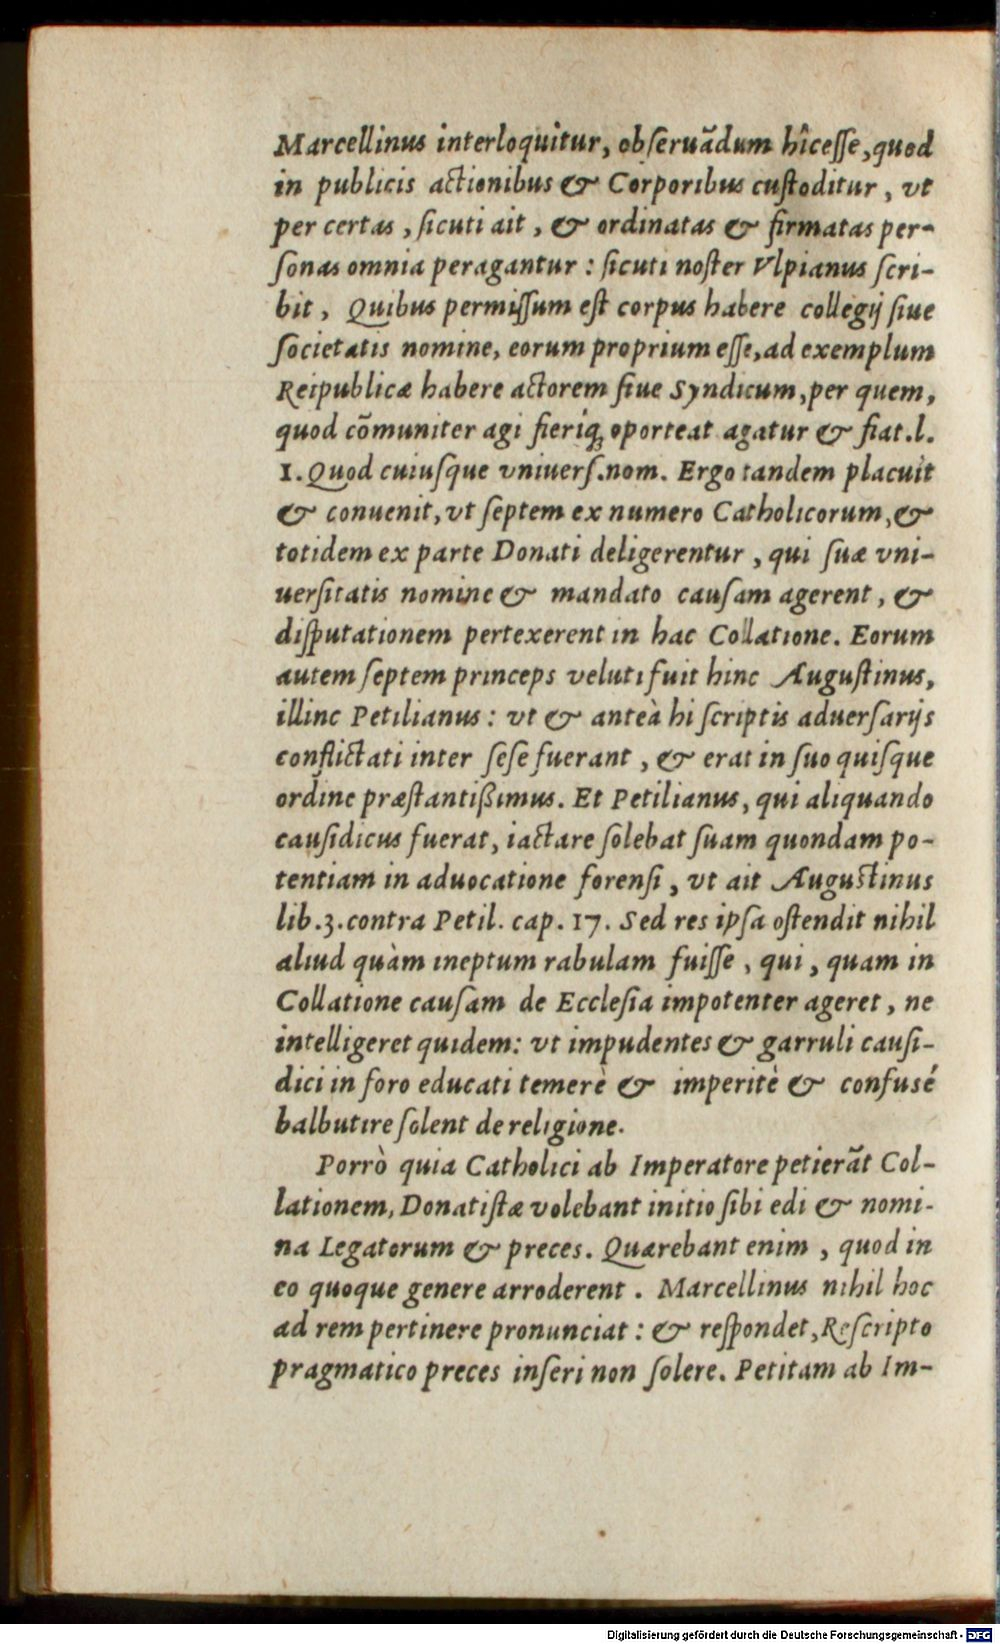 Marcellinus interloquitur, obſeruãdum hîc eſſe, quod
in publicis actionibus & Corporibus cuſtoditur, vt
per certas, ſicuti ait, & ordinatas & firmatas per-
ſonas omnia peragantur: ſicuti noſter Vlpianus ſcri-
bit, Quibus permiſſum eſt corpus habere collegij ſiue
ſocietatis nomine, eorum proprium eſſe, ad exemplum
Reipublicæ habere actorem ſiue Syndicum, per quem,
quod cõmuniter agi fieriq́; oporteat agatur & fiat. l.
1. Quod cuiuſque vniuerſ. nom. Ergo tandem placuit
& conuenit, vt ſeptem ex numero Catholicorum, &
totidem ex parte Donati deligerentur, qui ſuæ vni-
uerſitatis nomine & mandato cauſam agerent, &
diſputationem pertexerent in hac Collatione. Eorum
autem ſeptem princeps veluti fuit hinc Auguſtinus,
illinc Petilianus: vt & anteà hi ſcriptis aduerſarijs
conflictati inter ſeſe fuerant, & erat in ſuo quiſque
ordine præſtantißimus. Et Petilianus, qui aliquando
cauſidicus fuerat, iactare ſolebat ſuam quondam po-
tentiam in aduocatione forenſi, vt ait Auguſtinus
lib. 3. contra Petil. cap. 17. Sed res ipſa oſtendit nihil
aliud quàm ineptum rabulam fuiſſe, qui, quam in
Collatione cauſam de Eccleſia impotenter ageret, ne
intelligeret quidem: vt impudentes & garruli cauſi-
dici in foro educati temerè & imperitè & confusé
balbutire ſolent de religione.
Porrò quia Catholici ab Imperatore petierãt Col-
lationem, Donatiſtæ volebant initio ſibi edi & nomi-
na Legatorum & preces. Quærebant enim, quod in
eo quoque genere arroderent. Marcellinus nihil hoc
ad rem pertinere pronunciat: & reſpondet, Reſcripto
pragmatico preces inſeri non ſolere. Petitam ab Im-
Digitalisierung gefördert durch die Deutsche Forschungsgemeinschaft - DFG